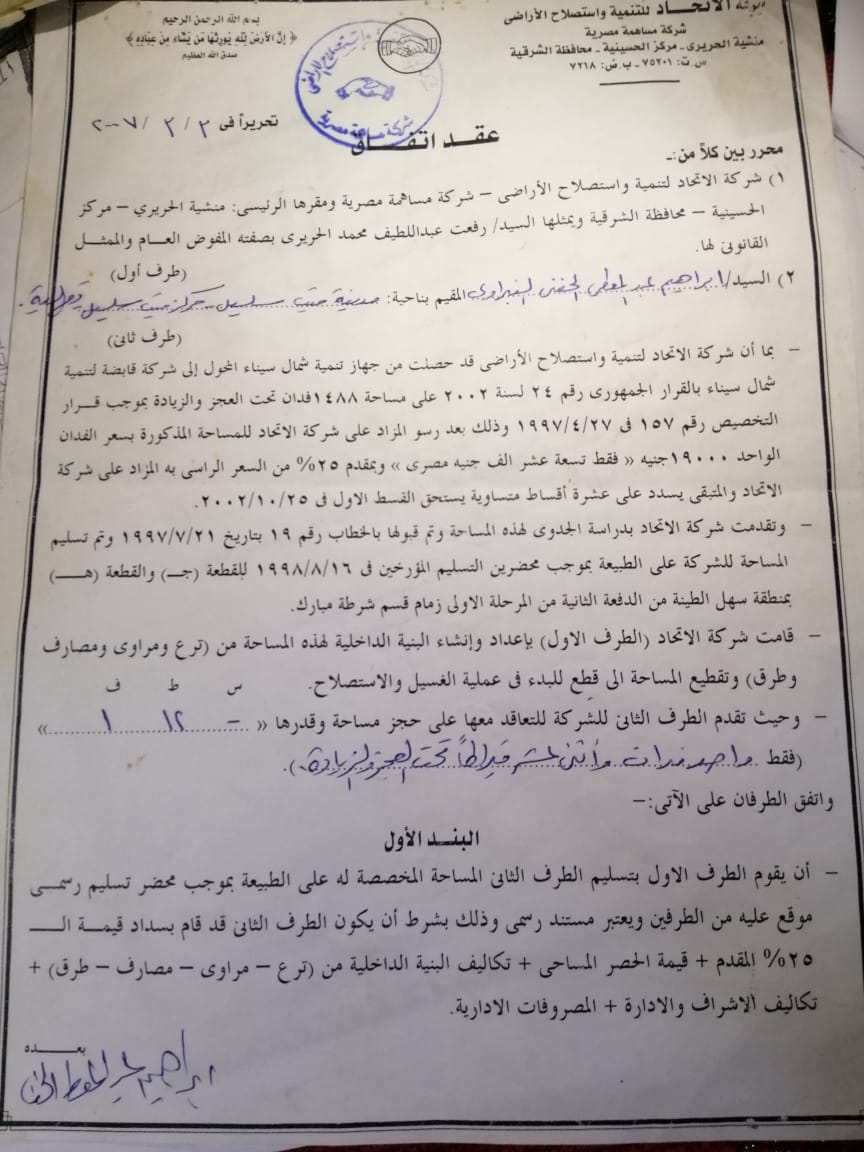 الاتحاد للتنمية واستصلاح الأراضى
شركة مساهمة مصرية
منشية الحريرى - مركز الحسينية - محافظة الشرقية
س.ت: ٧٥٢٠١ - ب.ض: ٧٢١٨
بسم الله الرحمن الرحيم
﴿ إِنَّ الأَرْضَ لِلَّهِ يُورِثُهَا مَن يَشَاءُ مِنْ عِبَادِهِ ﴾
صدق الله العظيم
شركة مساهمة مصرية
تحريراً فى ٣ / ٣ / ٢٠٠٧
عقد اتفاق
محرر بين كلاً من:-
١) شركة الاتحاد لتنمية واستصلاح الأراضى – شركة مساهمة مصرية ومقرها الرئيسى: منشية الحريري – مركز
الحسينية – محافظة الشرقية ويمثلها السيد/ رفعت عبداللطيف محمد الحريرى بصفته المفوض العام والممثل
القانونى لها.
(طرف أول)
٢) السيد/ ابراهيم عبد المعطى الحفنى المقيم بناحية: مدينة ميت سلسيل - مركز ميت سلسيل دقهلية.
(طرف ثانى)
– بما أن شركة الاتحاد لتنمية واستصلاح الأراضى قد حصلت من جهاز تنمية شمال سيناء المحول إلى شركة قابضة لتنمية
شمال سيناء بالقرار الجمهورى رقم ٢٤ لسنة ٢٠٠٢ على مساحة ١٤٨٨ فدان تحت العجز والزيادة بموجب قرار
التخصيص رقم ١٥٧ فى ١٩٩٧/٤/٢٧ وذلك بعد رسو المزاد على شركة الاتحاد للمساحة المذكورة بسعر الفدان
الواحد ١٩٠٠٠ جنيه « فقط تسعة عشر الف جنيه مصرى » وبمقدم ٢٥% من السعر الراسى به المزاد على شركة
الاتحاد والمتبقى يسدد على عشرة أقساط متساوية يستحق القسط الاول فى ٢٠٠٢/١٠/٢٥.
– وتقدمت شركة الاتحاد بدراسة الجدوى لهذه المساحة وتم قبولها بالخطاب رقم ١٩ بتاريخ ١٩٩٧/٧/٢١ وتم تسليم
المساحة للشركة على الطبيعة بموجب محضرين التسليم المؤرخين فى ١٩٩٨/٨/١٦ للقطعة (جـ) والقطعة (هـ)
بمنطقة سهل الطينة من الدفعة الثانية من المرحلة الاولى زمام قسم شرطة مبارك.
– قامت شركة الاتحاد (الطرف الاول) بإعداد وإنشاء البنية الداخلية لهذه المساحة من (ترع ومراوى ومصارف
وطرق) وتقطيع المساحة الى قطع للبدء فى عملية الغسيل والاستصلاح.
س ط ف
– وحيث تقدم الطرف الثانى للشركة للتعاقد معها على حجز مساحة وقدرها « - ١٢ ١ »
(فقط واحد فدان وأثنى عشر قيراطاً تحت العجز والزيادة.)
واتفق الطرفان على الآتى:–
البند الأول
– أن يقوم الطرف الاول بتسليم الطرف الثانى المساحة المخصصة له على الطبيعة بموجب محضر تسليم رسمى
موقع عليه من الطرفين ويعتبر مستند رسمى وذلك بشرط أن يكون الطرف الثانى قد قام بسداد قيمة الـ
٢٥% المقدم + قيمة الحصر المساحى + تكاليف البنية الداخلية من (ترع – مراوى – مصارف – طرق) +
تكاليف الاشراف والادارة + المصروفات الادارية.
بعده
ابراهيم عبد المعطى الحفنى